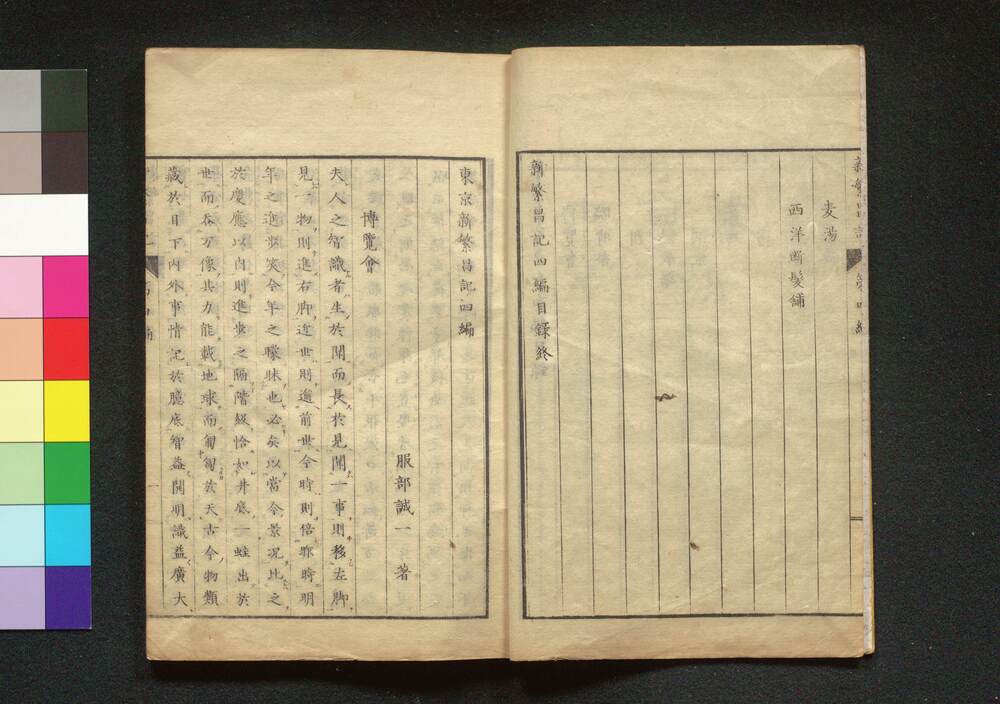 麦湯
西洋断髪舗
新繁昌記四編目録終
東京新繁昌記四編
服部誠一 著
博覧會
夫人之智識者生於聞而長於見聞一事則移左脚
見一物則進右脚近世則邁前世今時則倍昨時明
年之進歩笑今年之曚昧也必矣以當今景况比之
於慶應以内則進歩之隔階級恰如井底一蛙出於
世而呑万像其力能載地球而匍匐於天古今物類
藏於目下内外事情記於臆底智益開明識益廣大